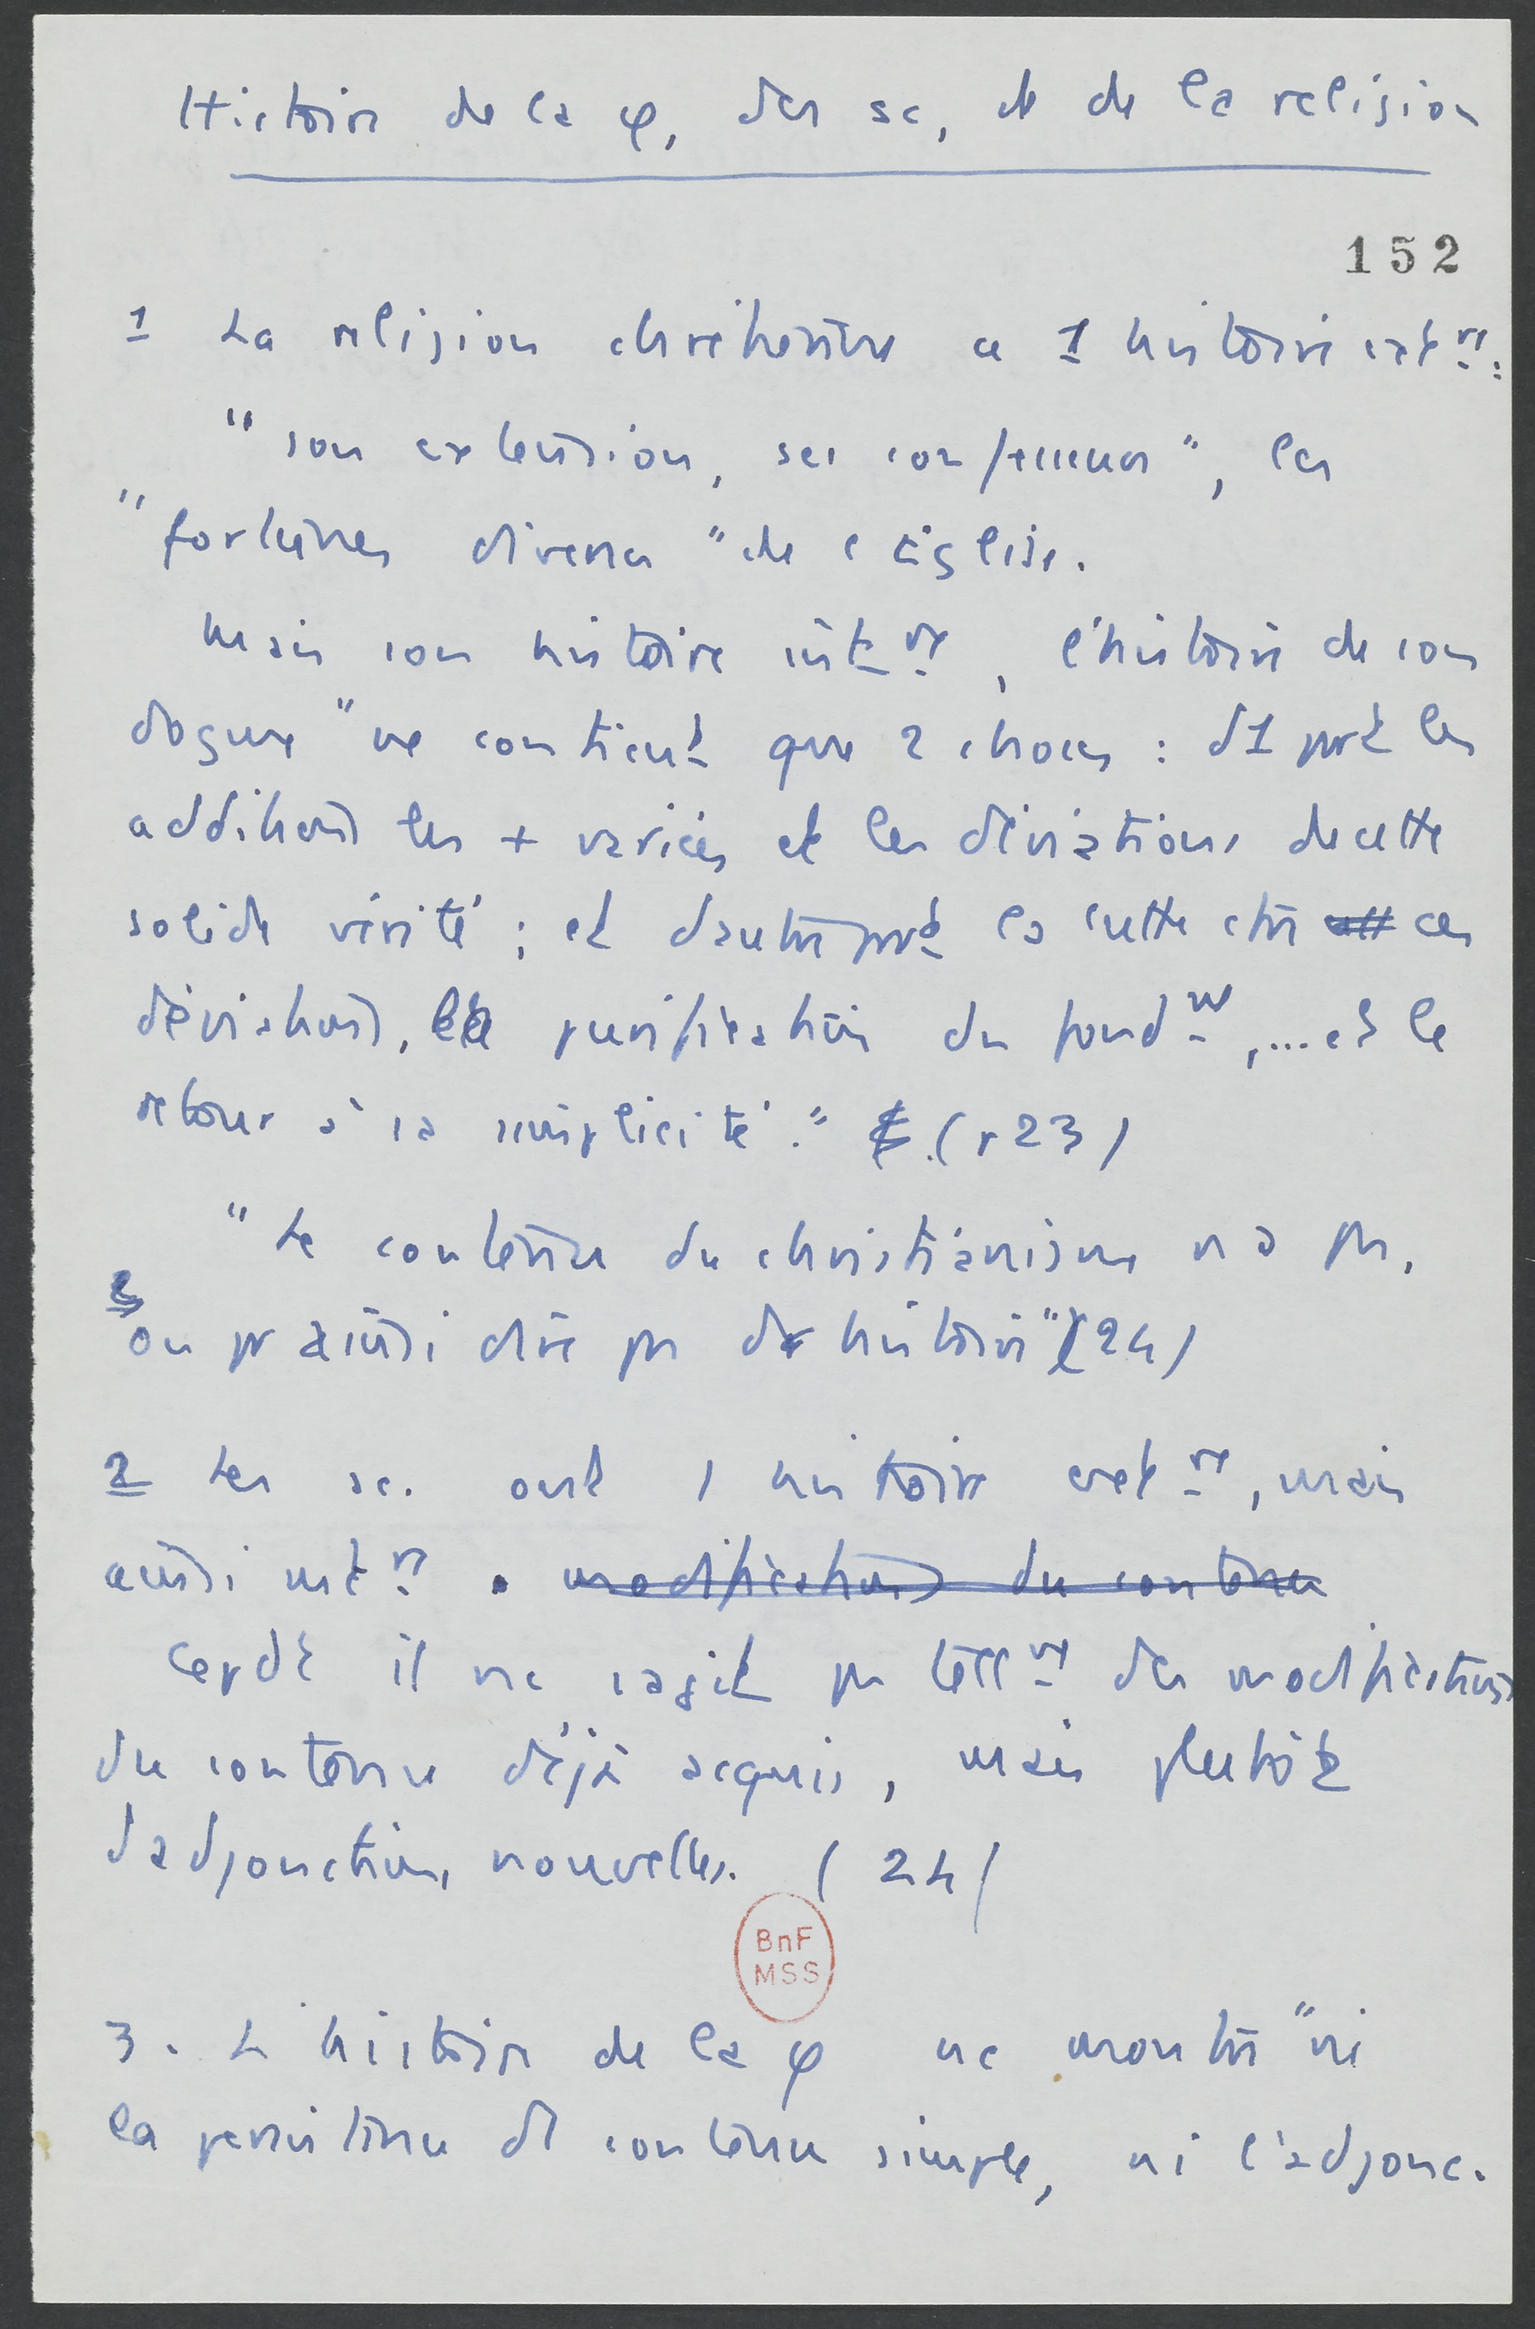 Histoire de la φ, des sc, et de la religion
152
1 La religion chrétienne a 1 histoire extre :
"son extension, ses confesseurs", les
"fortunes diverses" de l'Eglise.
Mais son histoire intre, l'histoire de son
dogme "ne contient que 2 choses : d'1 part les
additions les + variées et les déviations de cette
solide vérité ; et d'autre part la lutte ctre ces
déviations, la purification du fondt,... et le
retour à la simplicité." (p 23)
"Le contenu du christianisme n'a pas,
on pr ainsi dire pas d'histoire" (24)
2 Les sc. ont 1 histoire extre, mais
aussi intre. modifications du contenu
Cepdt il ne s'agit pas tellt des modifications
du contenu déjà acquis, mais plutôt
d'adjonctions nouvelles. (24)
BnF
MSS
3. L'histoire de la φ ne montre "ni
la persistance d'1 contenu simple, ni l'adjonc.